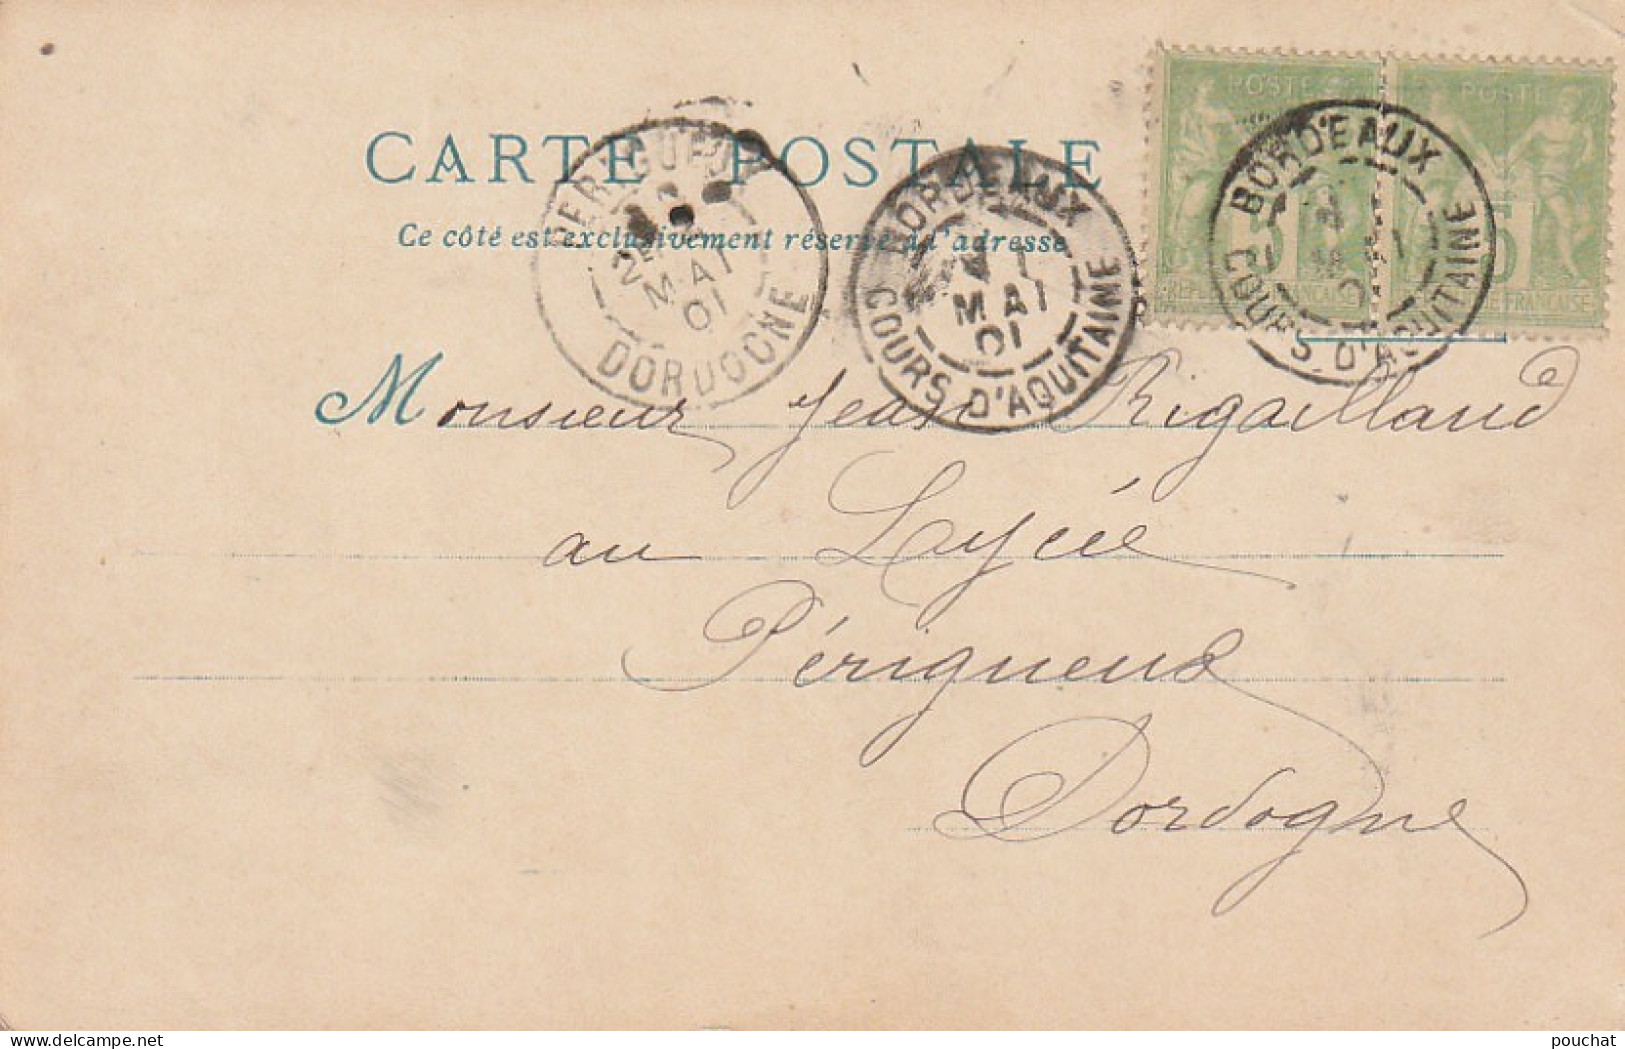 CARTE POSTALE
Ce côté est exclusivement réservé à l'adresse
POSTE
POSTE
5
5
RÉPUBLIQUE FRANÇAISE
FRANÇAISE
BORDEAUX
MAI
COURS D'AQUITAINE
BORDEAUX
MAI
01
COURS D'AQUITAINE
PERIGUEUX
MAI
01
DORDOGNE
Monsieur Jean Rigailland
au Lycée
Périgueux
Dordogne
delcampe.net
pouchat